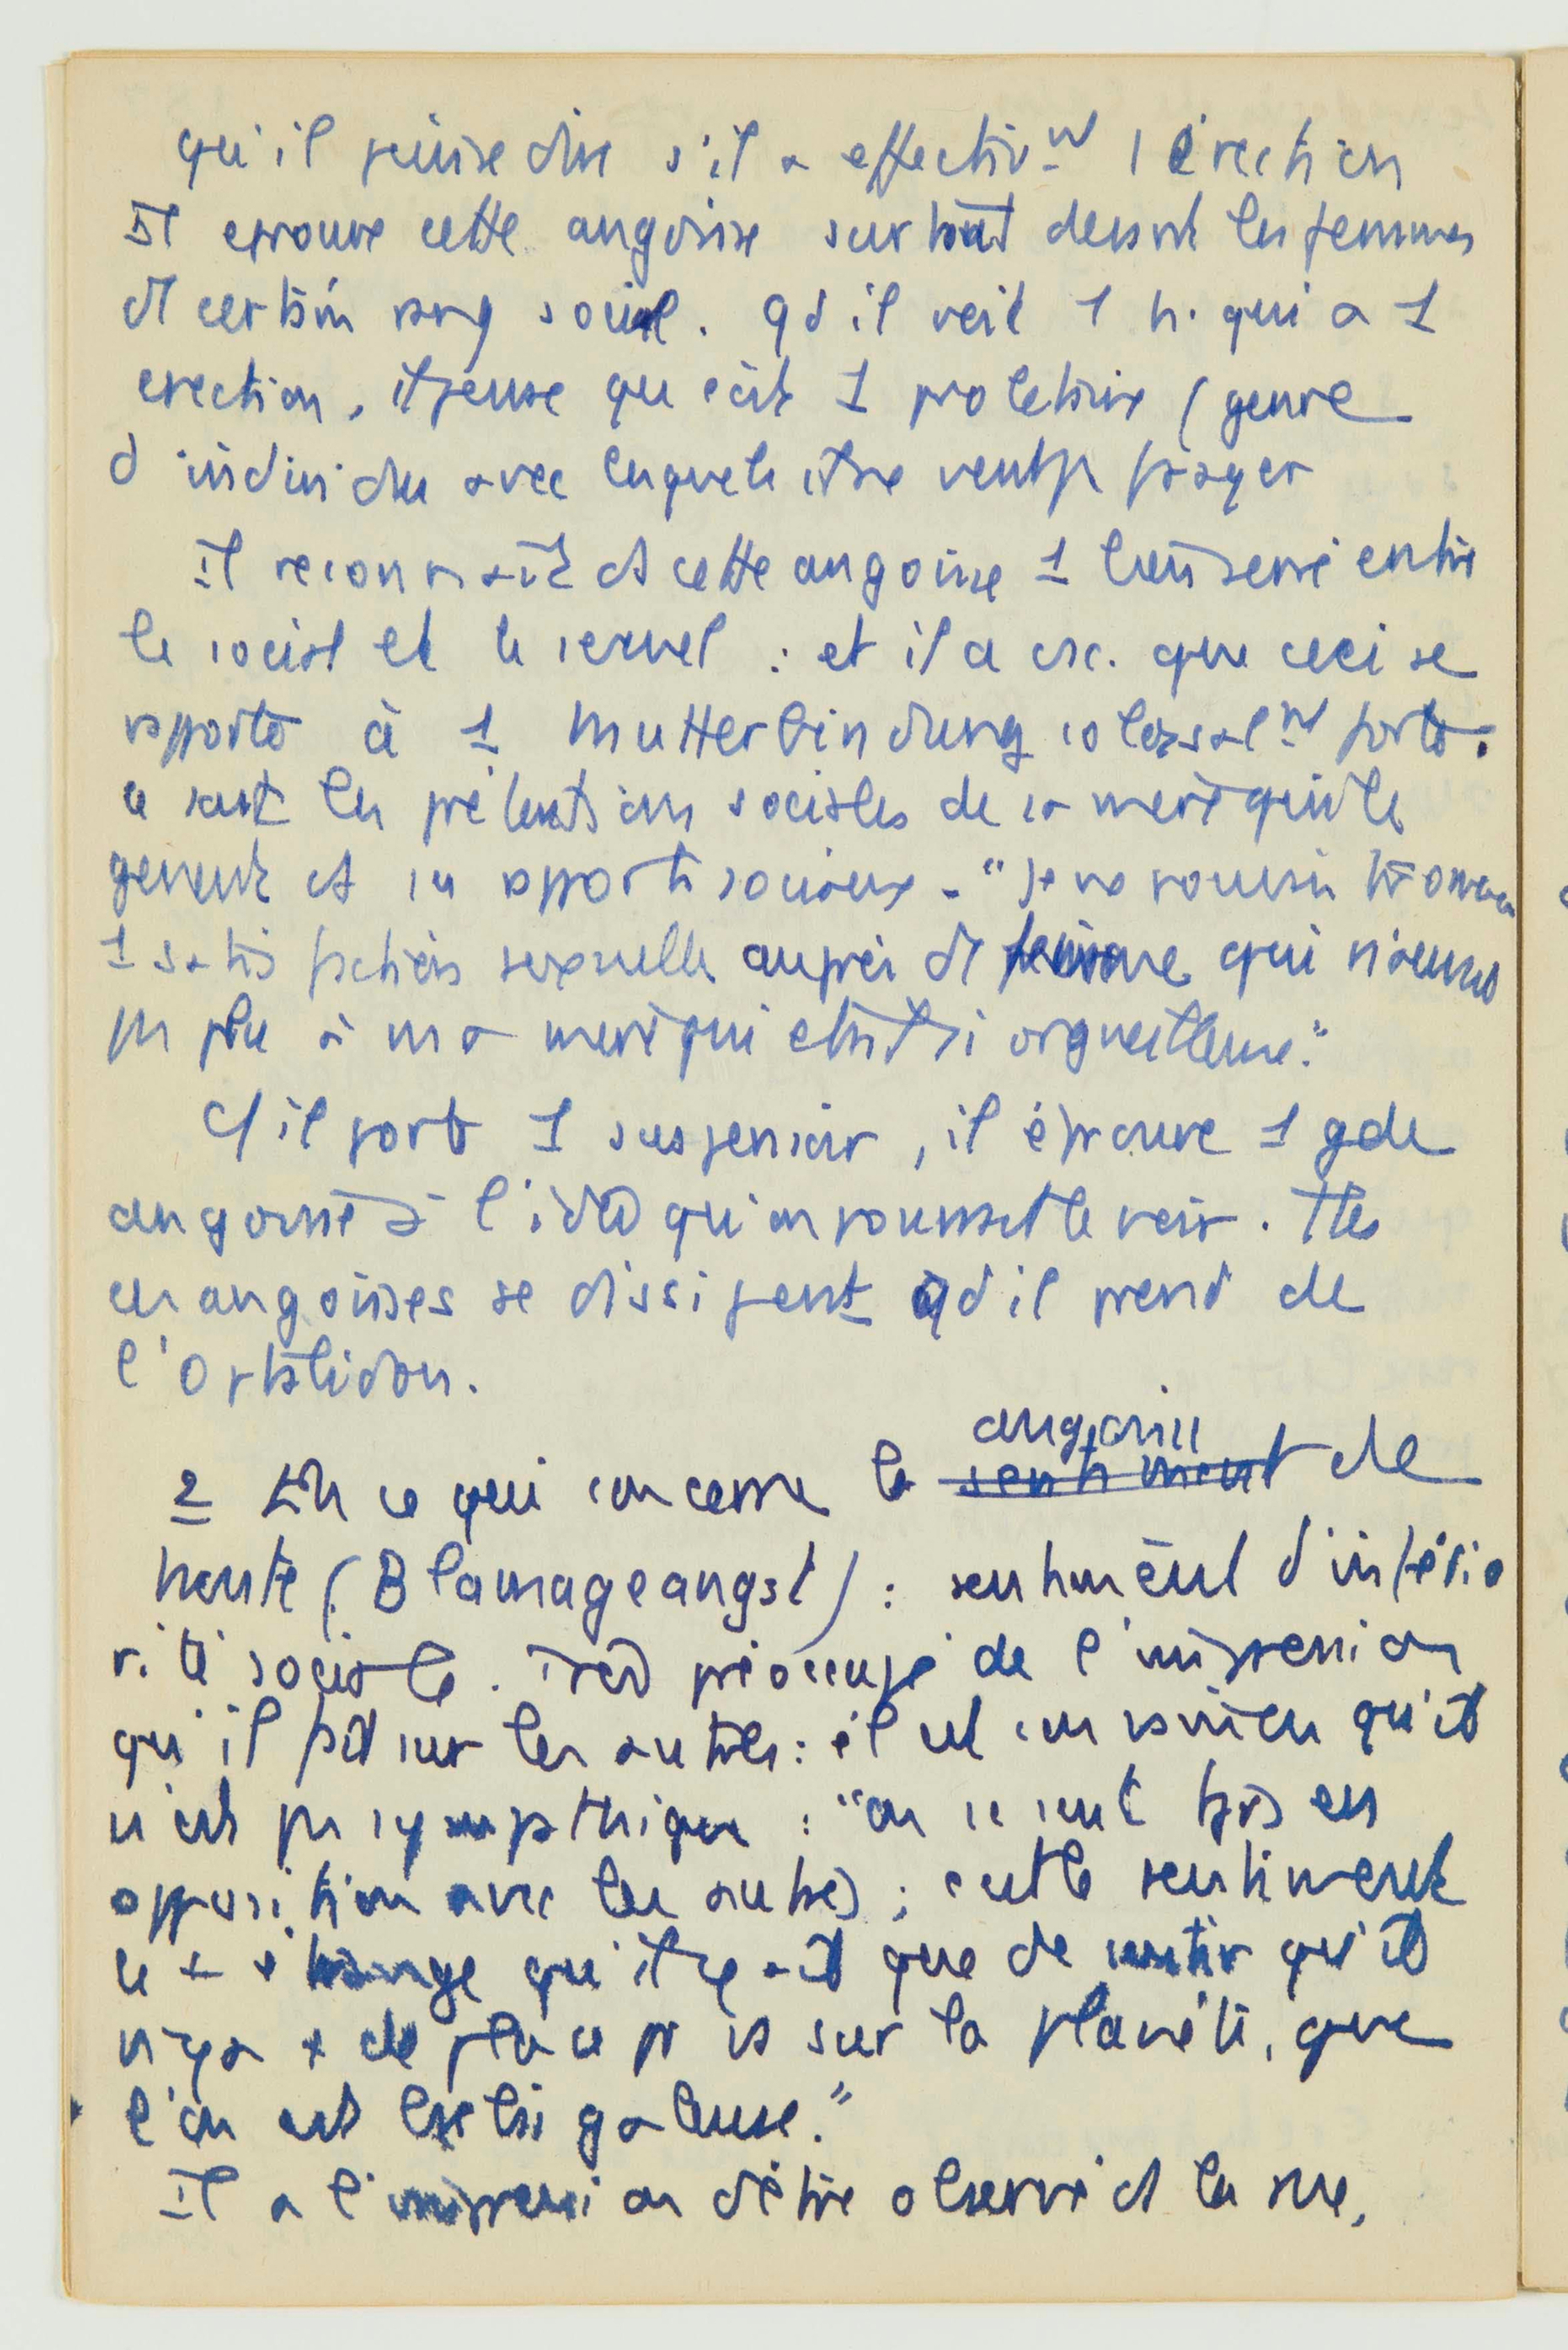 qu'il puisse dire s'il a effectivt 1 érection
Il eprouve cette angoisse surtout devant les femmes
d certain rang social. qd il voit 1 h. qui a 1
erection, il pense que c'est 1 proletaire (genre
d'individu avec lesquels il ne veut pas frayer
Il reconnaît ds cette angoisse 1 lien serré entre
le social et le sexuel : et il a que ceci se
rapporte à 1 Mutterbindung colossalt forte.
ce sont les prétentions sociales de sa mere qui le
genent ds ses rapports sociaux - "Je ne pouvais trouver
1 satisfaction sexuelle auprès de femme qui n'aurait
pas plu à ma mere qui était si orgueilleuse."
qd il porte 1 suspensoir, il éprouve 1 gde
angoisse à l'idée qu'on pourrait le voir. Ttes
ces angoisses se dissipent qd il prend de
l'Ortalidon.
2 En ce qui concerne le sentiment angoisse de
honte (Blamageangst) : sentiment d'infério
rité sociale. Très préoccupé de l'impression
qu'il fait sur les autres : il est convaincu qu'il
n'est pas sympathique : "on se sent en
opposition avec les autres ; c'est le sentiment
le + étrange qu'il y ait que de sentir qu'il
n'y a + de place pr vs sur la planète, que
l'on est bête galeuse."
Il a l'impression d'être observé ds la rue,